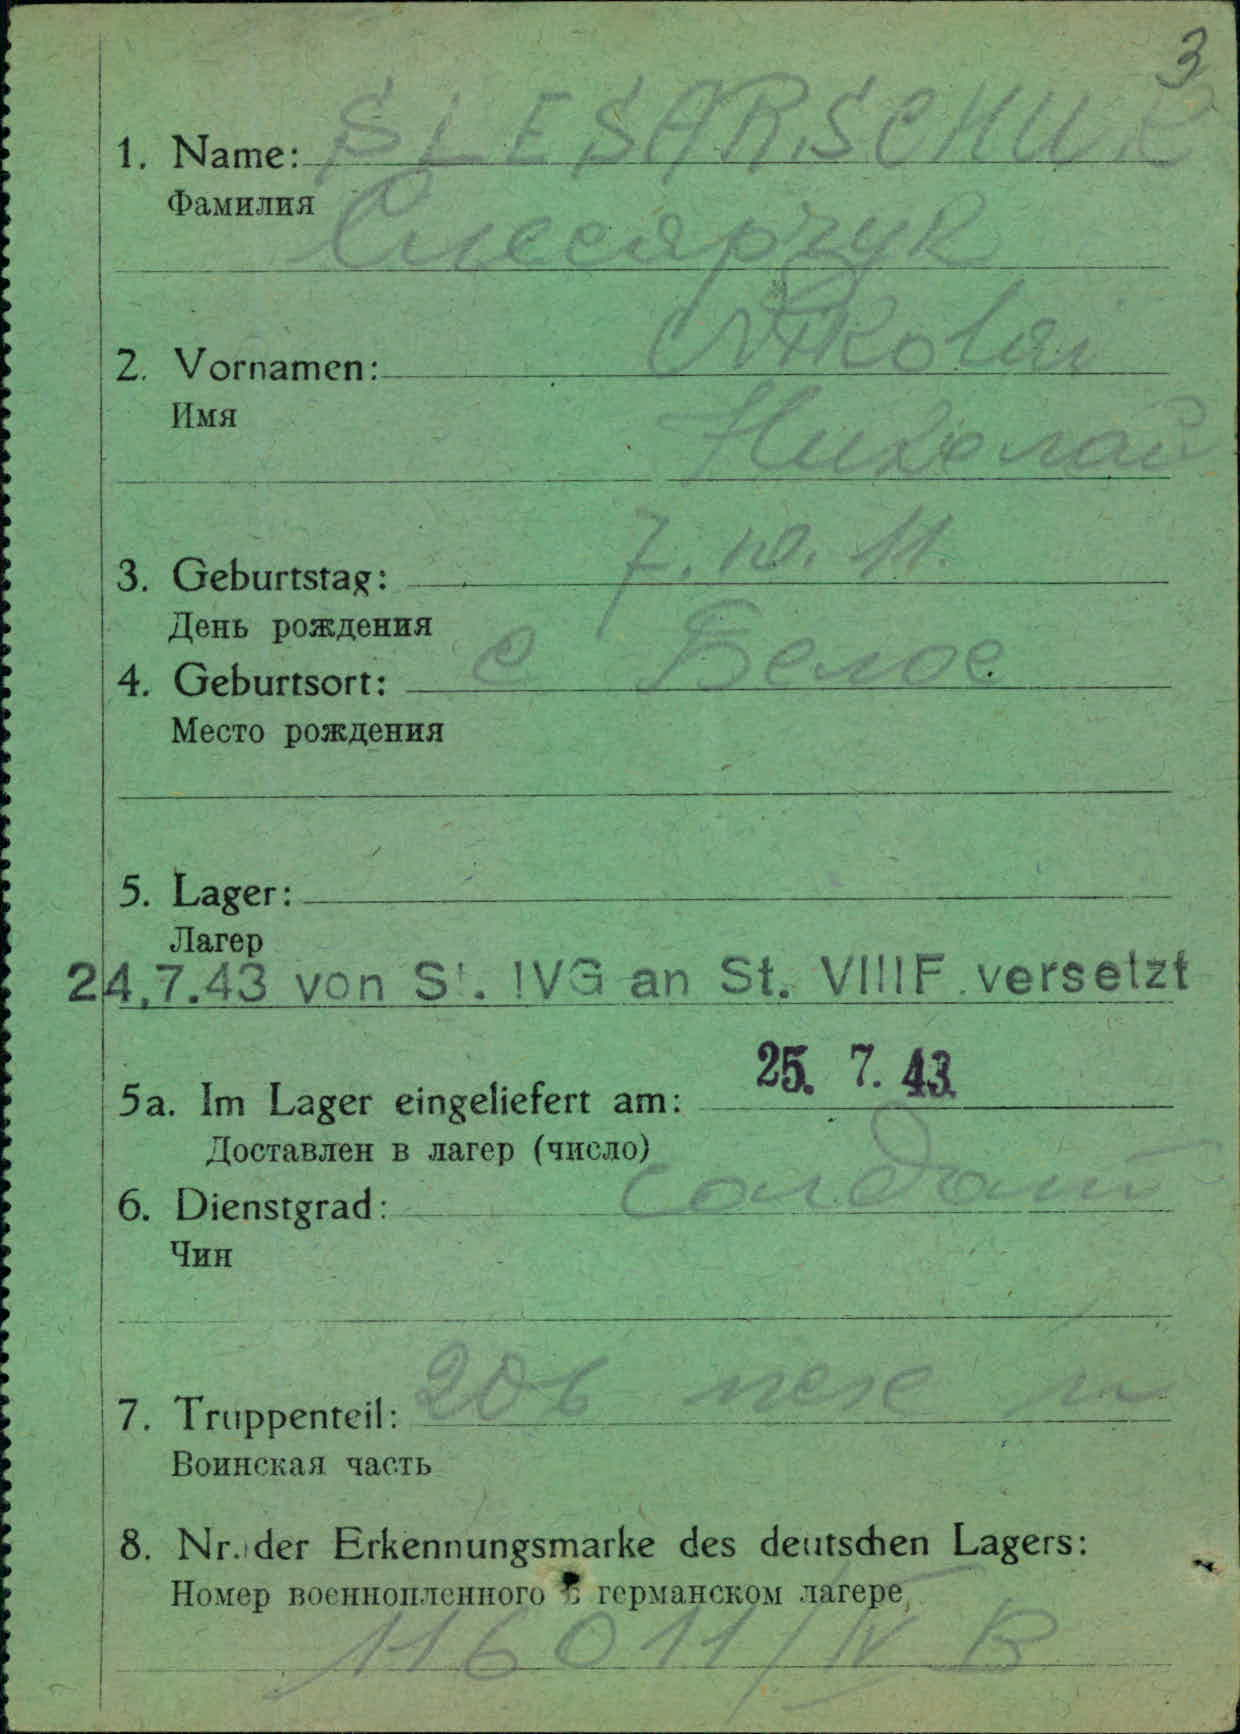 3
1. Name: SLESARSCHUK
Фамилия Слесарчук
Nikolai
2. Vornamen:
Имя Николай
3. Geburtstag: 7. 10. 11.
День рождения
4. Geburtsort: с Белое
Место рождения
5. Lager:
Лагер
24.7.43 von St. IVG an St. VIIIF versetzt
5a. Im Lager eingeliefert am: 25. 7. 43
Доставлен в лагер (число)
6. Dienstgrad: солдат
Чин
7. Truppenteil: 206
Воинская часть
8. Nr. der Erkennungsmarke des deutschen Lagers:
Номер военнопленного в германском лагере
116011/IV B